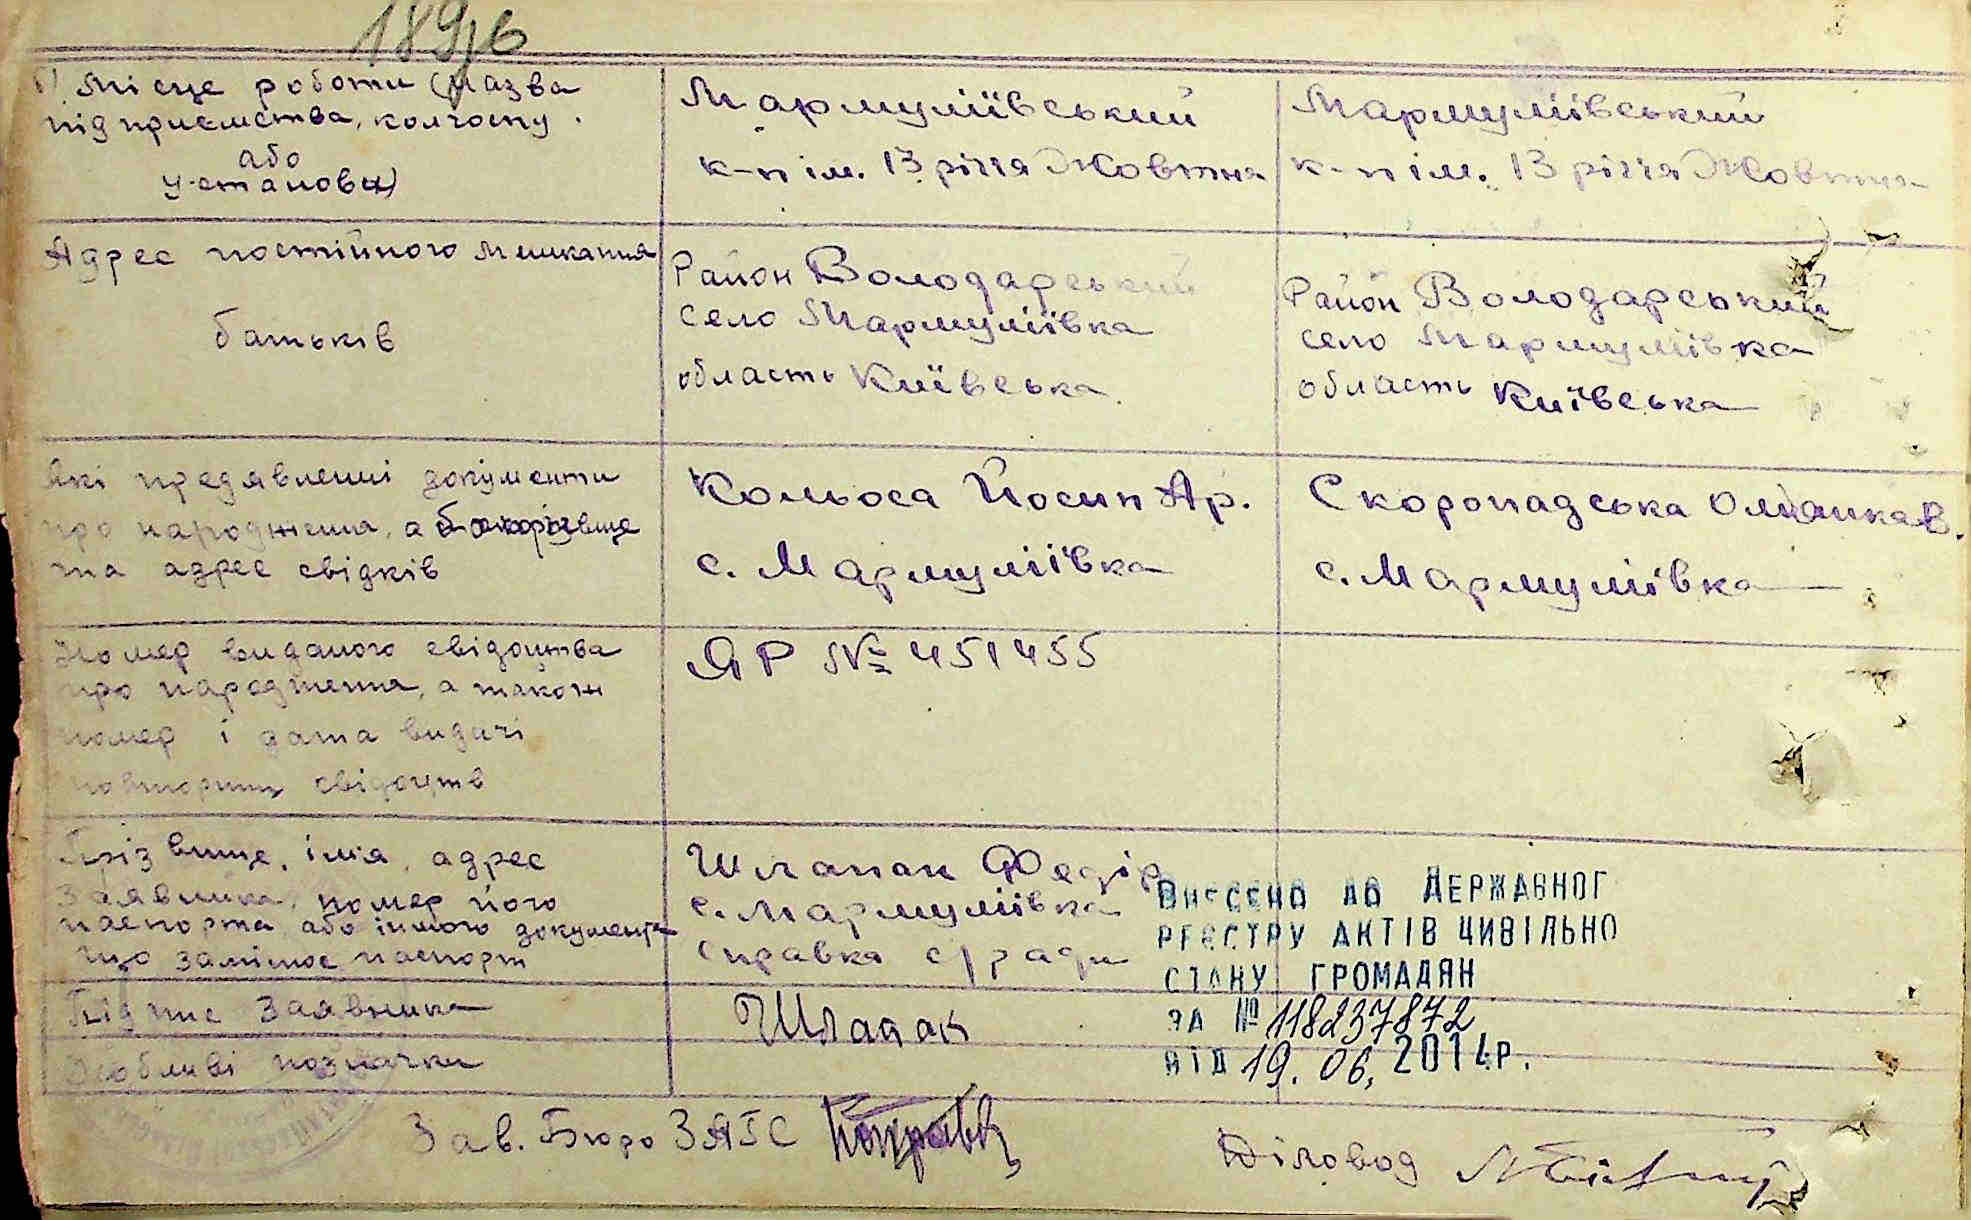 189/б
б) Місце роботи (назва
підприємства, колгоспу
або
установи)
Мармуліївський
к-п ім. 13 річчя Жовтня
Мармуліївський
к-п ім. 13 річчя Жовтня
Адрес постійного мешкання
батьків
Район Володарський
село Мармуліївка
область Київська
Район Володарський
село Мармуліївка
область Київська
Які предявленні документи
про народження, а
та адрес свідків
Кольоса Йосип Ар.
с. Мармуліївка
Скоропадська В.
с. Мармуліївка
Номер виданого свідоцтва
про народження, а також
номер і дата видачі
повторних свідоцтв
ЯР № 451455
Прізвище, імя, адрес
заявника, номер його
паспорта або іншого документа
що замінює паспорт
Шлапак Федір
с. Мармуліївка
справка с/ради
Підпис заявника
Шлапак
Особливі позначки
Внесено до Державног
реєстру актів цивільно
стану громадян
за № 118237872
від 19.06.2014р.
Зав. Бюро ЗАГС
Діловод